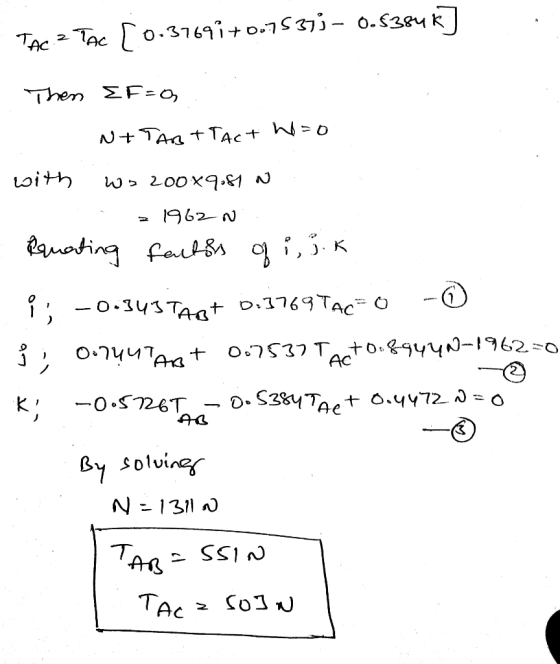 TAC = TAC [0.3769i + 0.7537j - 0.5384K]
Then ΣF=0,
N + TAB + TAC + W = 0
with W = 200×9.81 N
= 1962 N
Equating factors of i, j. K
i; -0.343TAB + 0.3769TAC = 0 -①
j; 0.744TAB + 0.7537TAC + 0.8944N - 1962 = 0
-②
K; -0.5726TAB - 0.5384TAC + 0.4472 N = 0
-③
By solving
N = 1311 N
TAB = 551 N
TAC = 503 N